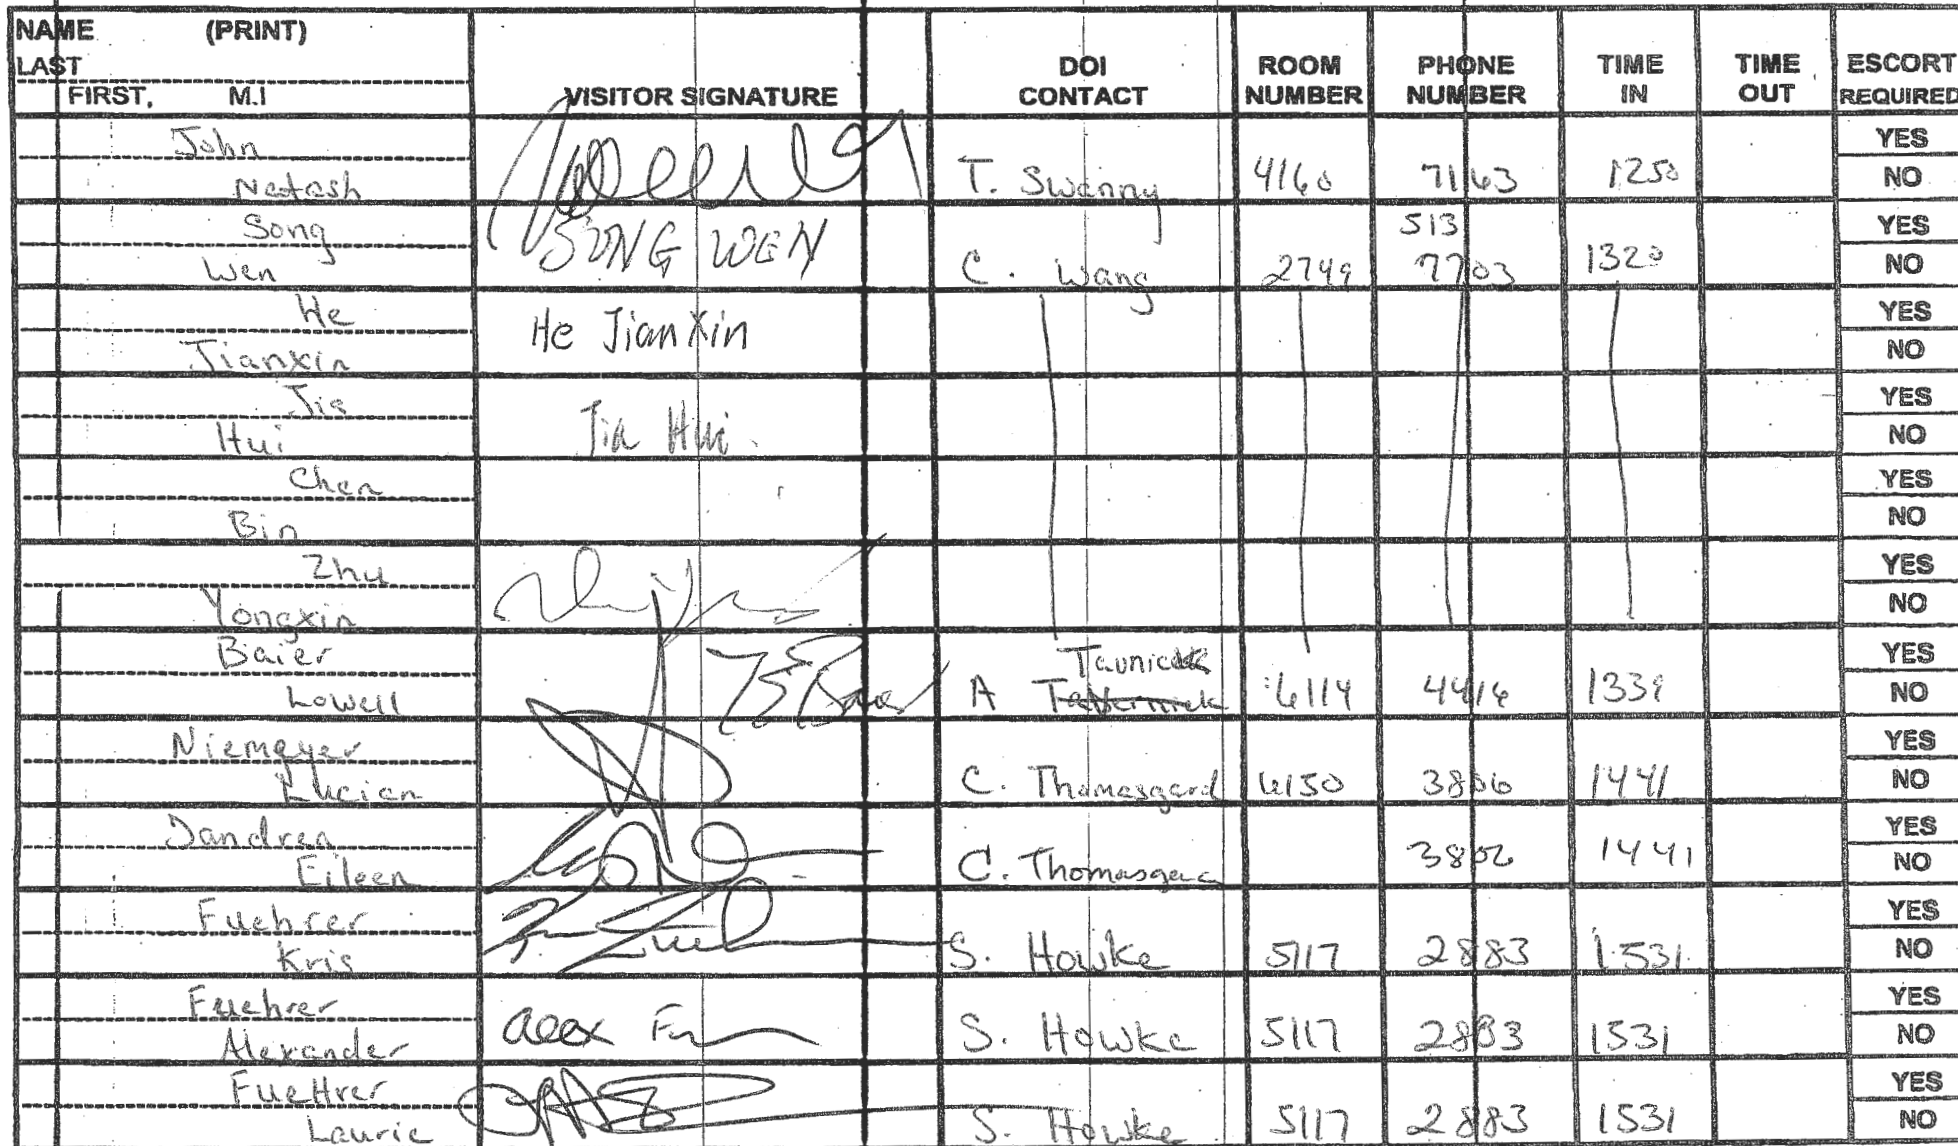 NAME (PRINT)
LAST
FIRST, M.I
VISITOR SIGNATURE
DOI CONTACT
ROOM NUMBER
PHONE NUMBER
TIME IN
TIME OUT
ESCORT REQUIRED
John
Natash T. Swanny 4160 7163 1250
YES
NO
Song
Wen SONG WEN C. Wang 2749 513 7703 1320
YES
NO
He
Jianxin He JianXin
YES
NO
Jia
Hui Jia Hui
YES
NO
Chen
Bin
YES
NO
Zhu
Yongxin
YES
NO
Baier
Lowell A 6114 4416 1339
YES
NO
Niemeyer
Lucian C. Thomasgard 6150 3806 1441
YES
NO
Eileen C. Thomasgard 1441
YES
NO
Fuehrer
Kris S. Howke 5117 2883 1531
YES
NO
Fuehrer
Alexander alex S. Howke 5117 2883 1531
YES
NO
FueHrer
Laurie S. Howke 5117 2883 1531
YES
NO